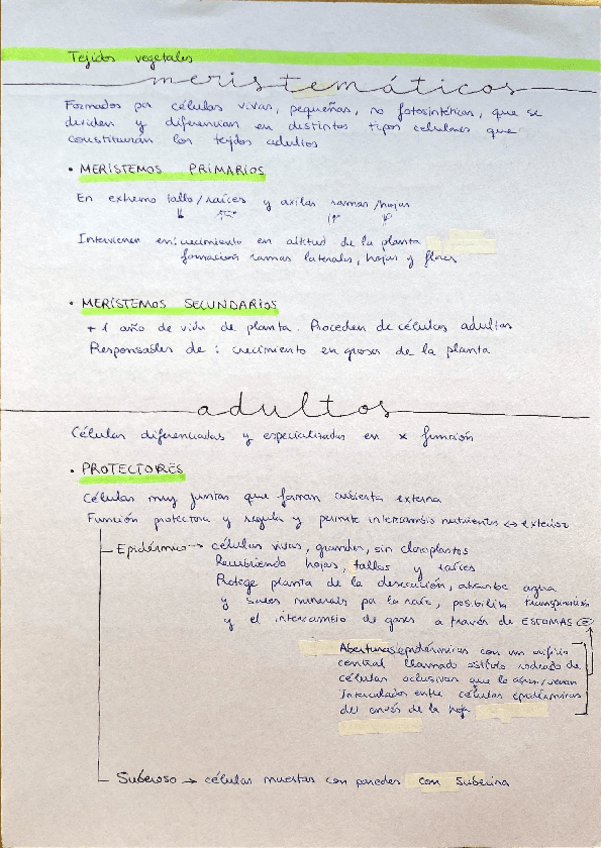 Tejidos vegetales
meristemáticos
Formados por células vivas, pequeñas, no fotosintéticas, que se
dividen y diferencian en distintos tipos celulares que
constituirán los tejidos adultos
• MERISTEMOS PRIMARIOS
En extremo tallo/raíces y axilas ramas/hojas
Intervienen en: crecimiento en altitud de la planta
formación ramas laterales, hojas y flores
• MERISTEMOS SECUNDARIOS
+ 1 año de vida de planta. Proceden de células adultas
Responsables de: crecimiento en grosor de la planta
adultos
Células diferenciadas y especializadas en x función
• PROTECTORES
Células muy juntas que forman cubierta externa
Función protectora y regula y permite intercambio nutrientes ↔ exterior
Epidérmico → células vivas, grandes, sin cloroplastos
Recubriendo hojas, tallos y raíces
Protege planta de la desecación, absorbe agua
y sales minerales por la raíz, posibilita transpiración
y el intercambio de gases a través de ESTOMAS
Aberturas epidérmicas con un orificio
central llamado ostiolo rodeado de
células oclusivas que lo abren/cierran
Intercalados entre células epidérmicas
del envés de la hoja
Suberoso → células muertas con paredes con suberina